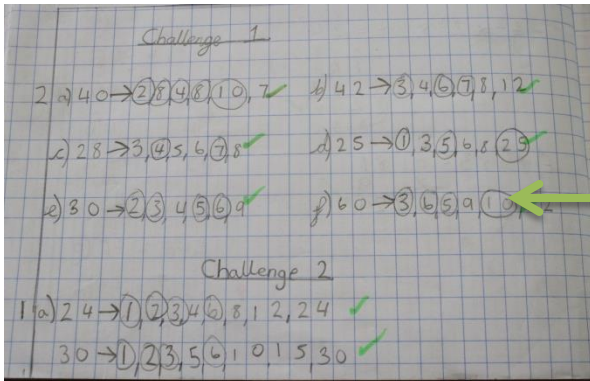 Challenge 1
2 a) 40→2,8,4,8,10,7 b) 42→3,4,6,7,8,12
c) 28→3,4,5,6,7,8 d) 25→1,3,5,6,8,25
e) 30→2,3,4,5,6,9 f) 60→3,6,5,9,10,
Challenge 2
1 a) 24→1,2,3,4,6,8,12,24
30→1,2,3,5,6,10,15,30